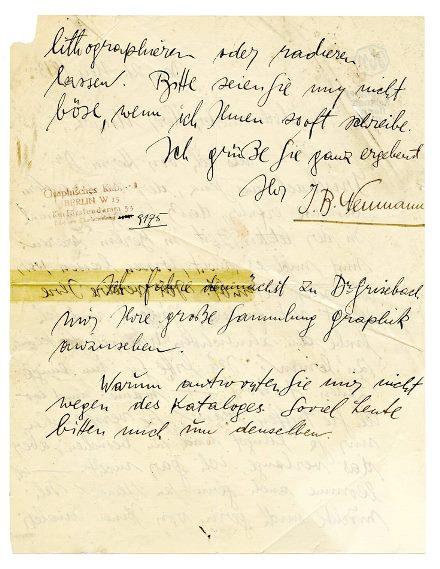 lithographieren oder radieren
lassen. Bitte seien Sie mir nicht
böse, wenn ich Ihnen so oft schreibe.
Ich grüße Sie ganz ergebenst
Ihr J. B. Neumann
Graphisches Kabinett
BERLIN W 15
Kurfürstendamm 33
9175
zu Dr Grisebach
mir Ihre große Sammlung Graphik
anzusehen.
Warum antworten Sie mir nicht
wegen des Kataloges. Soviel Leute
bitten mich um denselben.